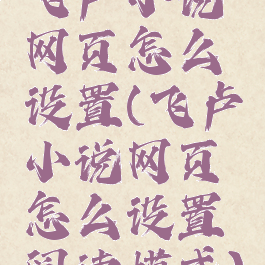 飞卢小说
网页怎么
设置(飞卢
小说网页
怎么设置
阅读模式)